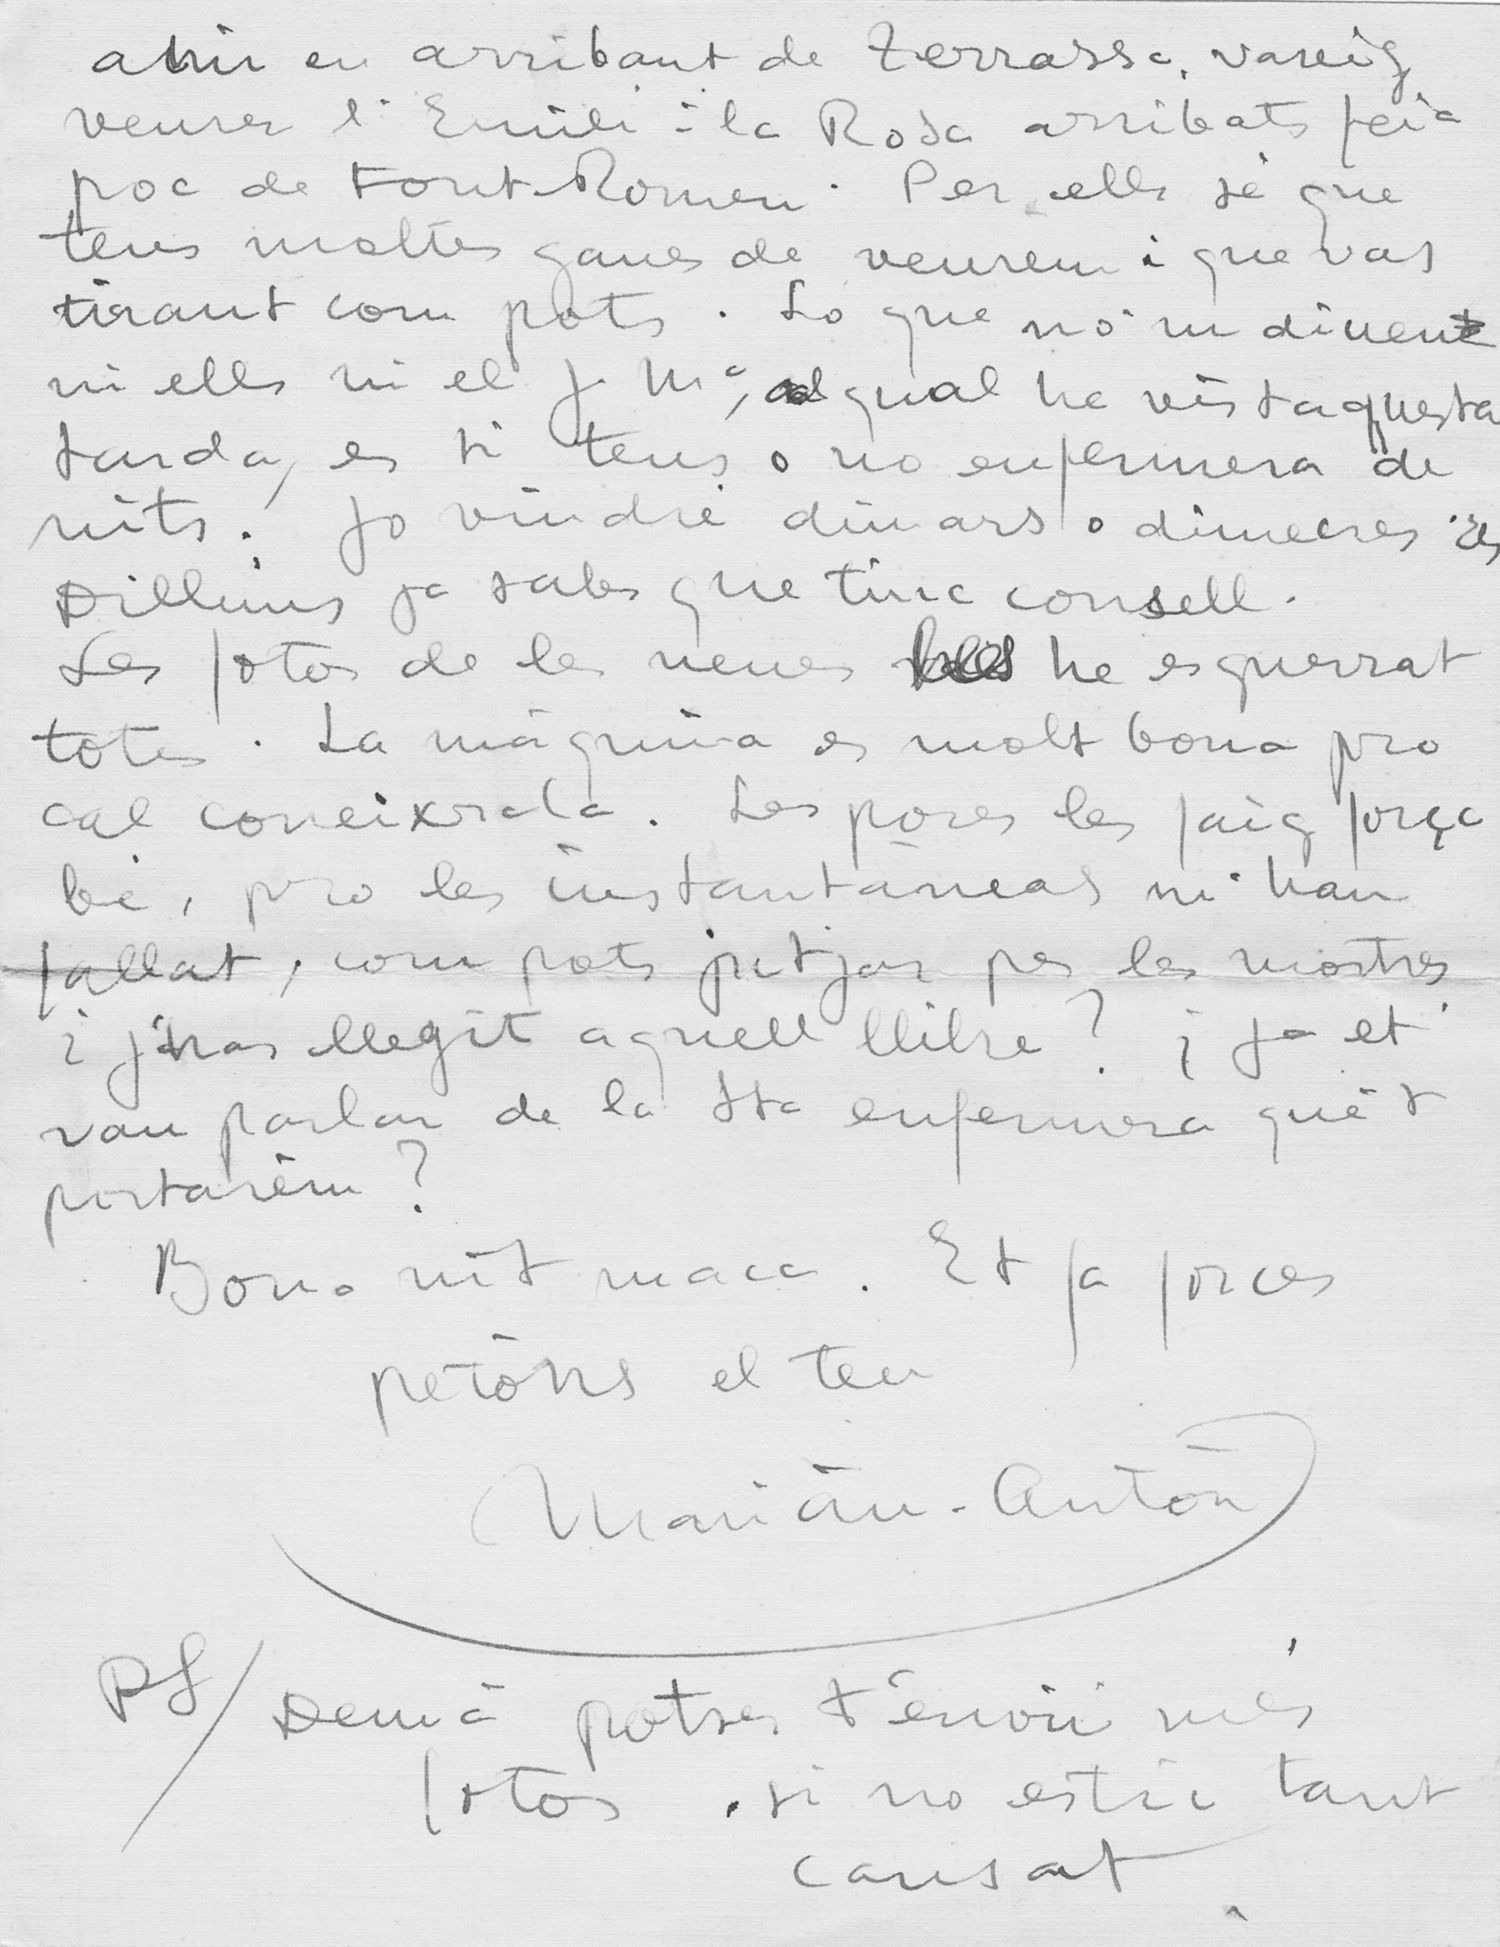 ahir en arribant de Terrassa, vareig
veurer l'Emili i la Rosa arribats feia
poc de Font-Romeu. Per ells sé que
tens moltes ganes de veurem i que vas
tirant com pots. Lo que no'm diuen
ni ells ni el J. Mª, al qual he vist aquesta
tarda, es si tens o no enfermera de
nits. Jo vindré dimars o dimecres. Els
Dilluns ja sabs que tinc consell.
Les fotos de les nenes les he esguerrat
totes. La máquina es molt bona pro
cal coneixrela. Les poses les faig força
bé, pro les instantáneas m'han
fallat, com pots jutjar per les mostres
i j'has llegit aquell llibre? i ja et
van parlar de la Sta enfermera que't
portarém?
Bona nit maca. Et fa forces
petóns el teu
Marián-Antón
PS/ Demá potser t'envii més
fotos, si no estic tant
cansat.